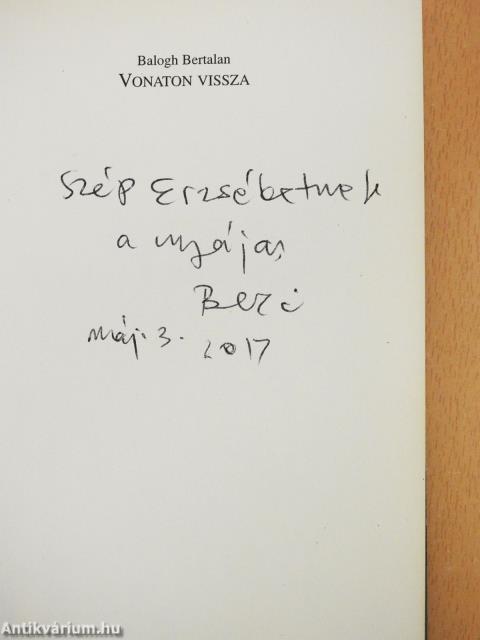 Balogh Bertalan
VONATON VISSZA
Szép Erzsébetnek
a nyájas
Berci
máj. 3. 2017
Antikvárium.hu